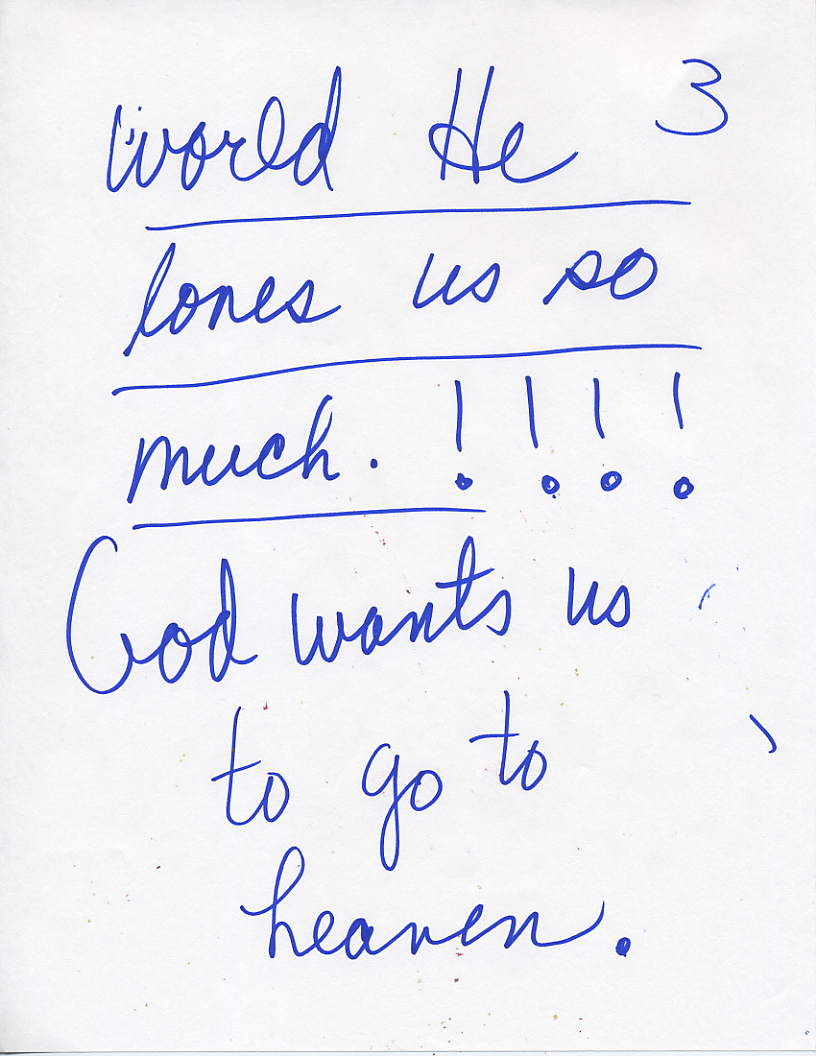 world He 3
loves us so
much. !!!!
God wants us
to go to
heaven.